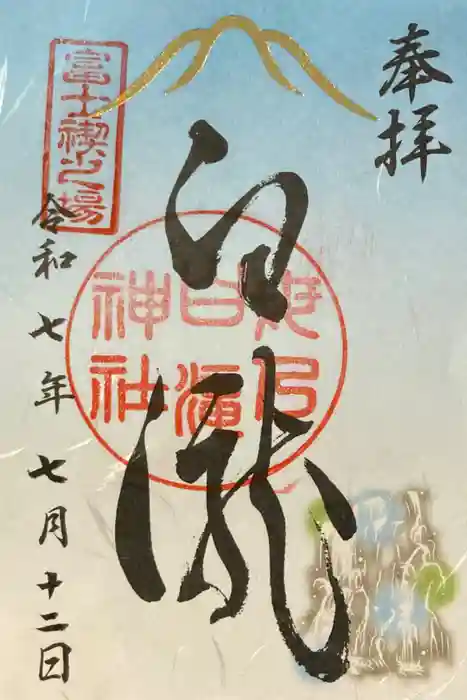 奉拝
白瀧
乃
白滝
神社
富士禊之場
令和七年七月十二日